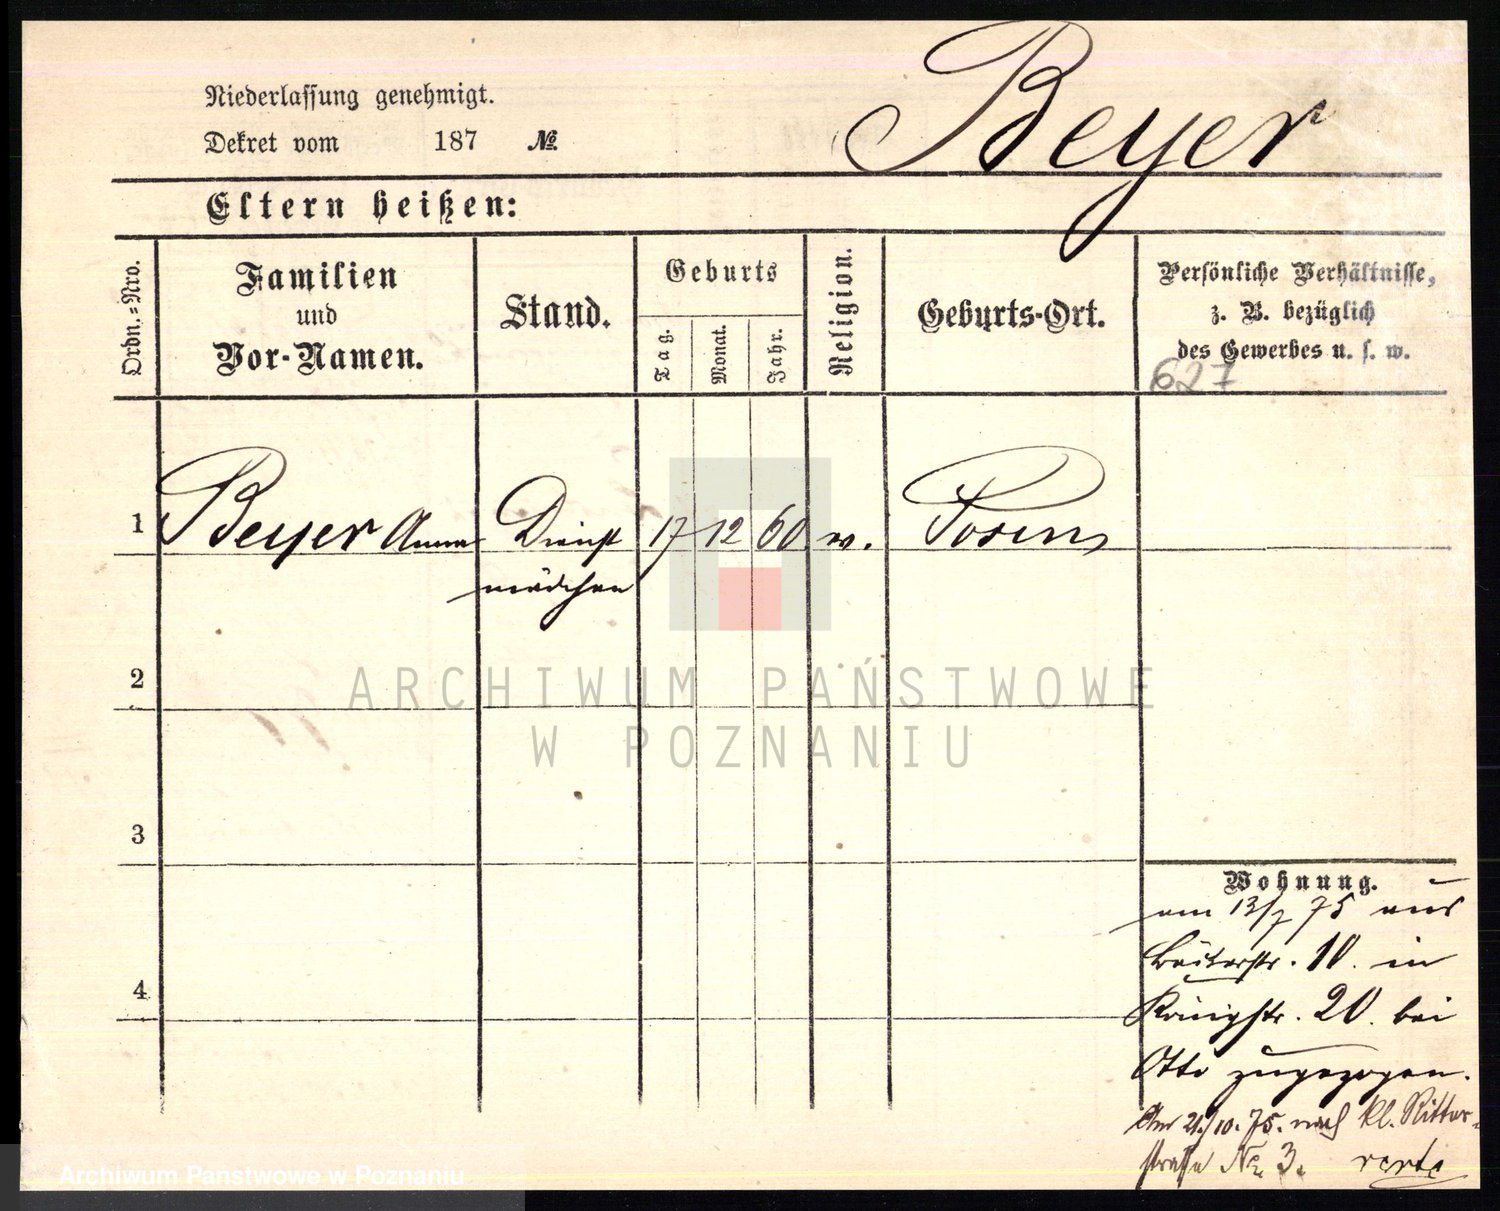 Niederlassung genehmigt.
Dekret vom 187 №
Beyer
Eltern heißen:
Ordn.=Nro.
Familien und Vor-Namen.
Stand.
Geburts
Tag.
Monat.
Jahr.
Religion.
Geburts-Ort.
Persönliche Verhältnisse,
z. B. bezüglich
des Gewerbes u. s. w.
627
1 Beyer Anna Dienst 17 12 60 Posen
mädchen
ARCHIWUM PAŃSTWOWE
W POZNANIU
2
3
4
Wohnung.
am 13/7 75 aus
Bäckerstr. 10. in
Königstr. 20. bei
Otto zugezogen.
Am 21./10. 75. nach kl. Ritter-
straße No. 3. verte
Archiwum Państwowe w Poznaniu